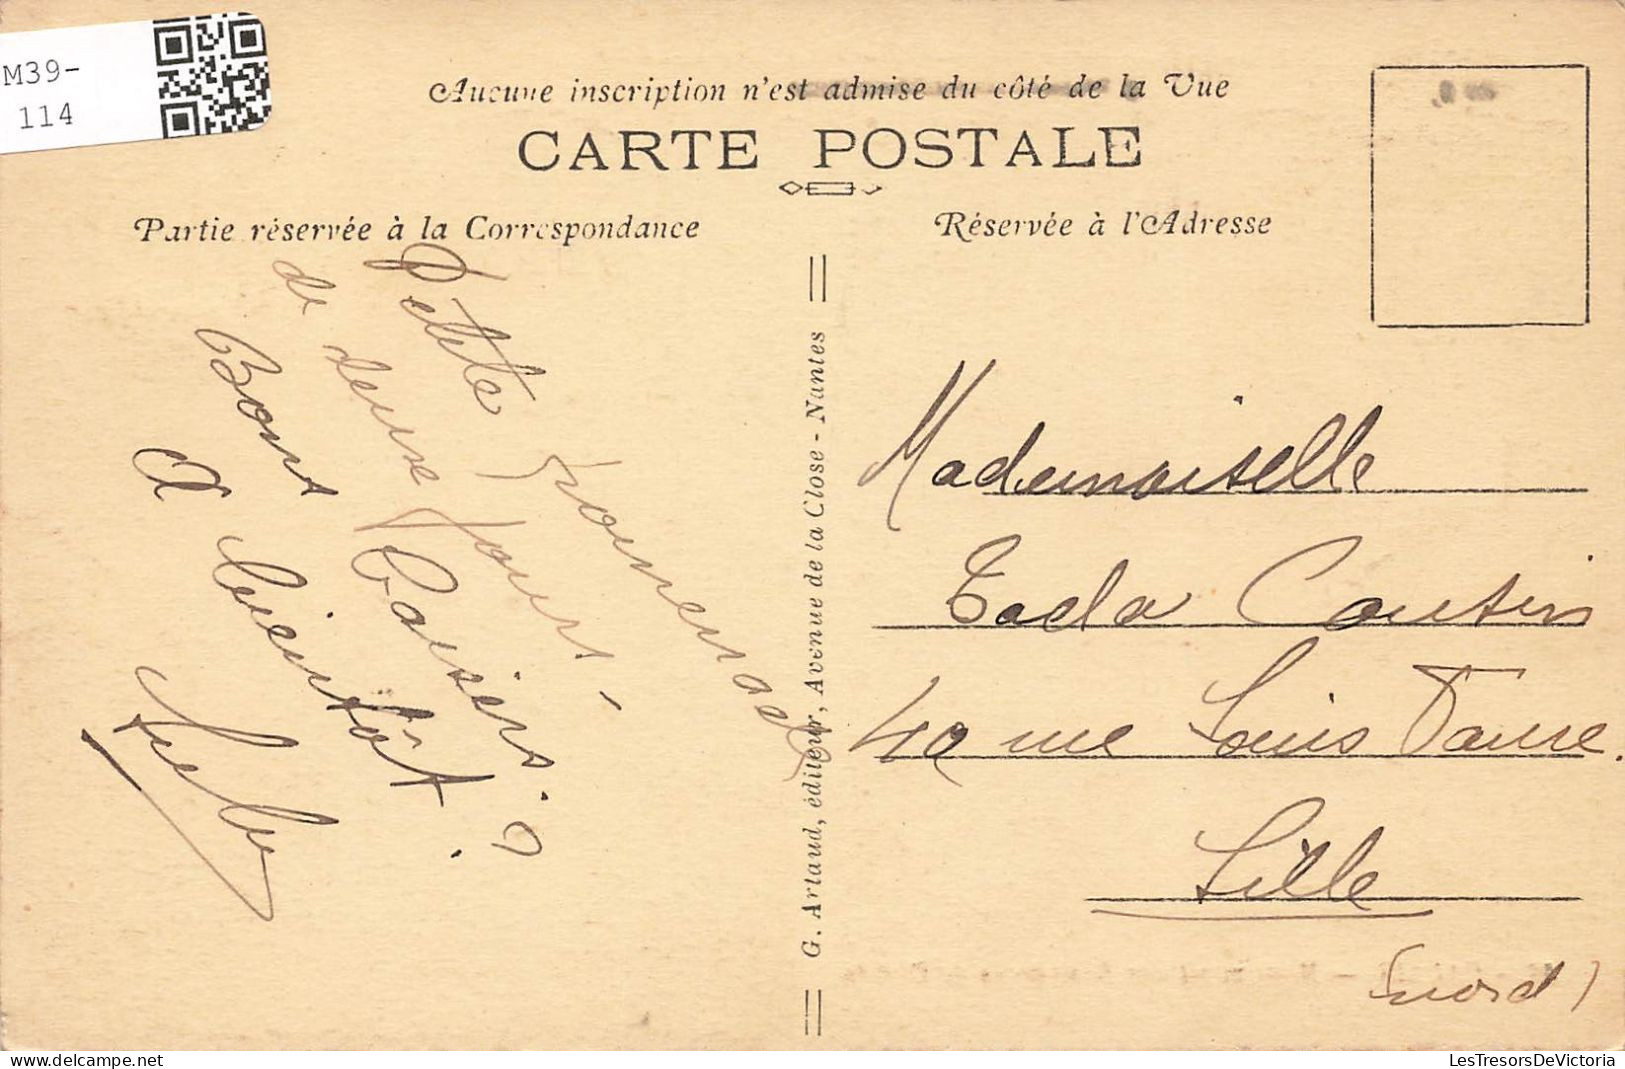 M39-
114
Aucune inscription n'est admise du côté de la Vue
CARTE POSTALE
Partie réservée à la Correspondance
Réservée à l'Adresse
Petite promenade
de deux jours!
Bons Baisers
A bientôt.
G. Artaud, éditeur, Avenue de la Close - Nantes
Mademoiselle
Cousin
40 rue Louis Faure.
Lille
(Nord)
LesTresorsDeVictoria
www.delcampe.net